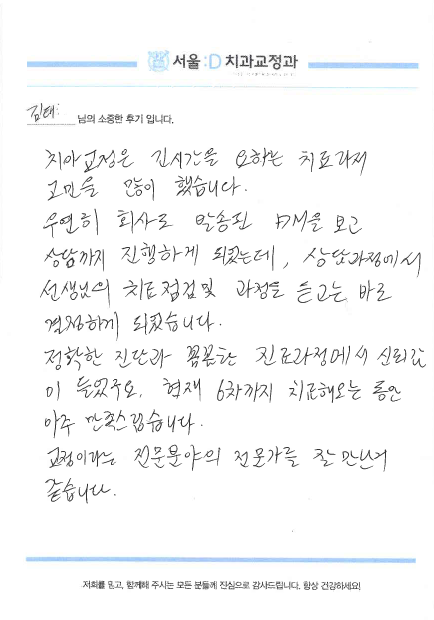 서울:D 치과교정과
김태
님의 소중한 후기 입니다.
치아교정은 긴시간을 요하는 치료라서
고민을 많이 했습니다.
우연히 회사로 발송된 DM을 보고
상담까지 진행하게 되었는데, 상담과정에서
선생님의 치료점검및 과정을 듣고는 바로
결정하게 되었습니다.
정확한 진단과 꼼꼼한 진료과정에서 신뢰감
이 들었구요. 현재 6차까지 치료해오는 동안
아주 만족스럽습니다.
교정이라는 전문분야의 전문가를 잘 만난거
같습니다.
저희를 믿고, 함께해 주시는 모든 분들께 진심으로 감사드립니다. 항상 건강하세요!